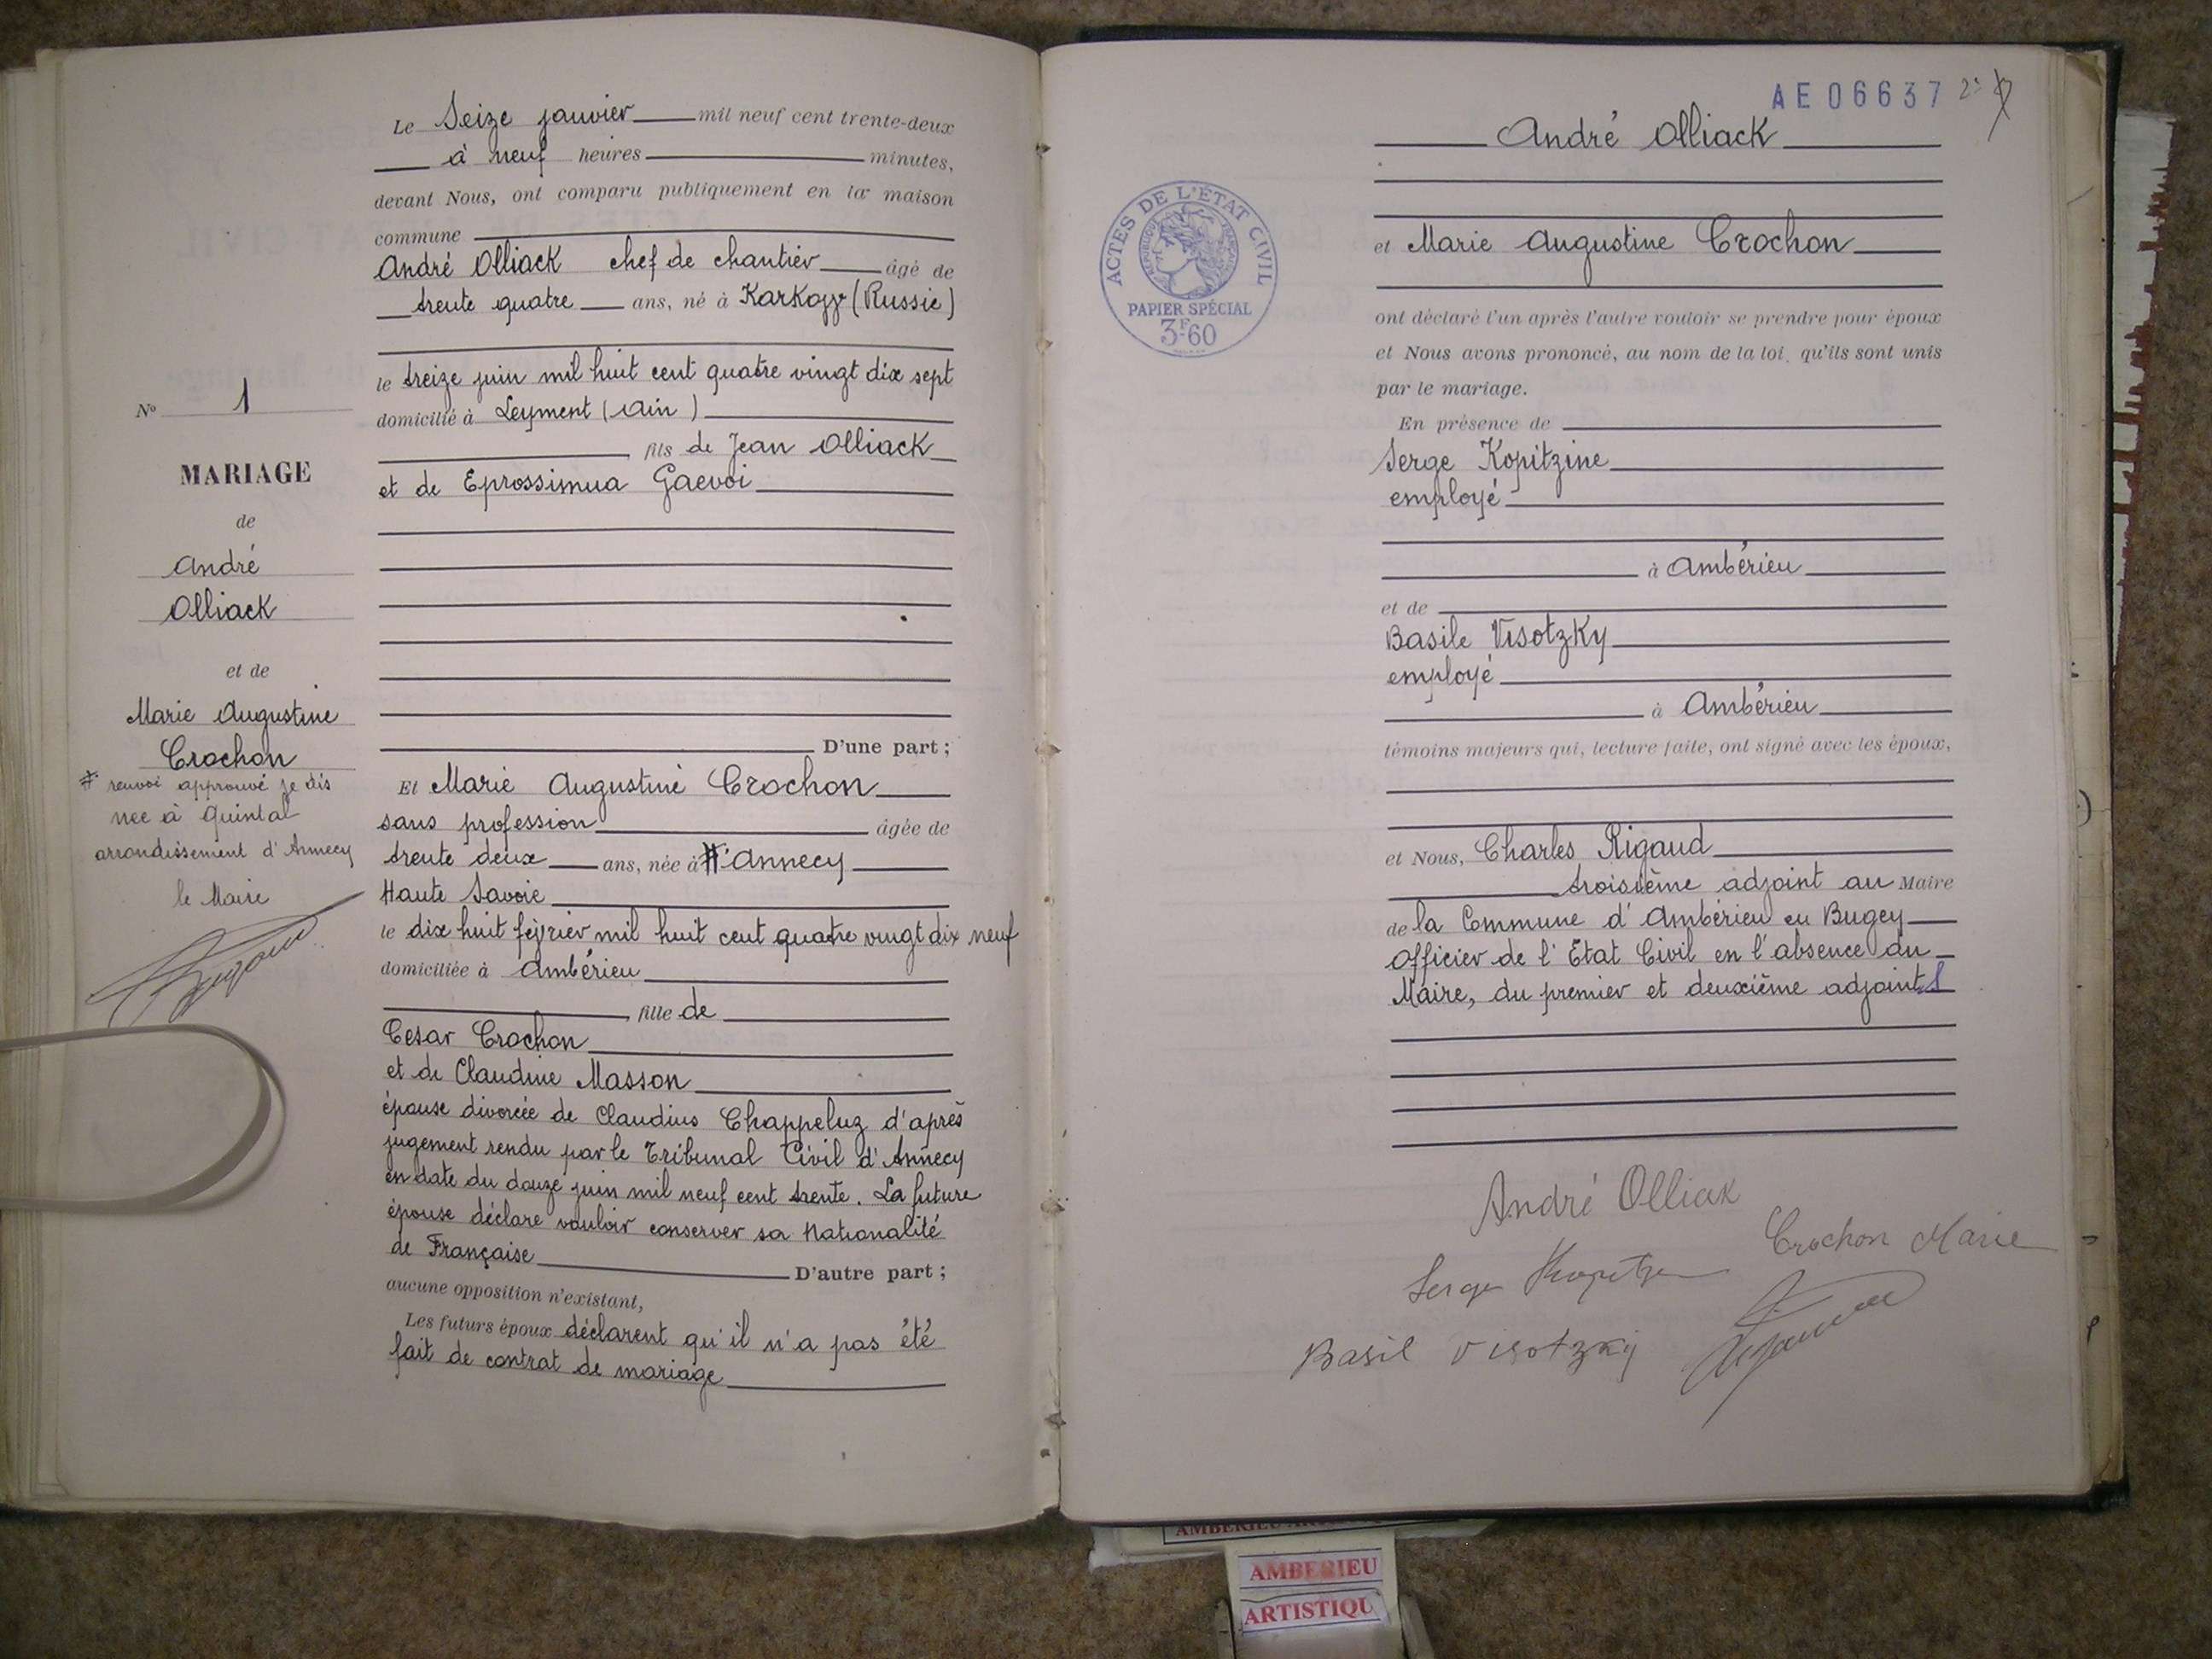 Le Seize janvier mil neuf cent trente-deux
à neuf heures minutes,
devant Nous, ont comparu publiquement en la maison
commune
André Olliack chef de chantier âgé de
trente quatre ans, né à (Russie)
le treize juin mil huit cent quatre vingt dix sept
domicilié à Leyment (Ain)
fils de Jean Olliack
et de Eprossimua Gaevoi
D'une part ;
Et Marie Augustine Crochon
sans profession âgée de
trente deux ans, née à # Annecy
Haute Savoie
le dix huit février mil huit cent quatre vingt dix neuf
domiciliée à Ambérieu
fille de
Cesar Crochon
et de Claudine Masson
épouse divorcée de Claudius Chappeluz d'après
jugement rendu par le Tribunal Civil d'Annecy
en date du douze juin mil neuf cent trente. La future
épouse déclare vouloir conserver sa Nationalité
de Française D'autre part ;
aucune opposition n'existant,
Les futurs époux déclarent qu'il n'a pas été
fait de contrat de mariage
No 1
MARIAGE
de
André
Olliack
et de
Marie Augustine
Crochon
# renvoi approuvé je dis
nee à Quintal
arrondissement d'Annecy
le Maire
AE06637
André Olliack
et Marie Augustine Crochon
ACTES DE L'ÉTAT CIVIL
RÉPUBLIQUE FRANÇAISE
PAPIER SPÉCIAL
3F-60
ont déclaré l'un après l'autre vouloir se prendre pour époux
et Nous avons prononcé, au nom de la loi, qu'ils sont unis
par le mariage.
En présence de
Serge Kopitzine
employé
à Ambérieu
et de
Basile Visotzky
employé
à Ambérieu
témoins majeurs qui, lecture faite, ont signé avec les époux,
et Nous, Charles Rigaud
troisième adjoint au Maire
de la Commune d'Ambérieu en Bugey
officier de l'Etat Civil en l'absence du
Maire, du premier et deuxième adjoints
André Olliak
Crochon Marie
Serge
Basil Visotzkij
AMBERIEU
ARTISTIQU